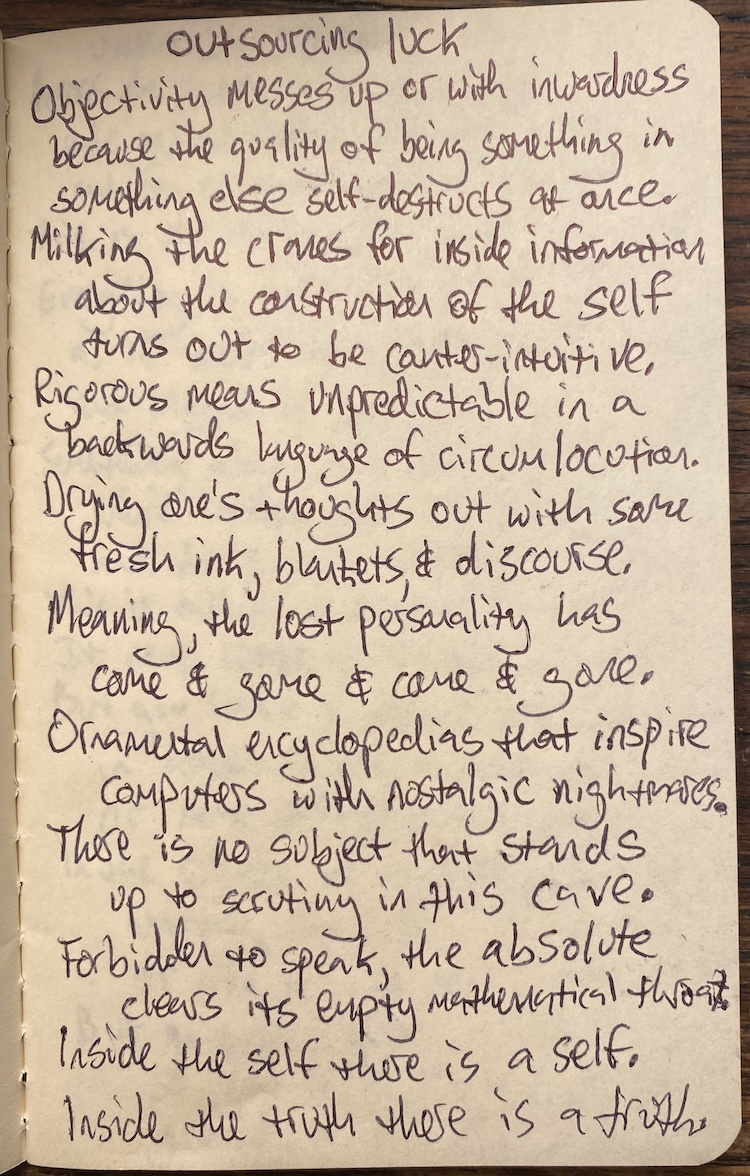 outsourcing luck
Objectivity messes up or with inwardness
because the quality of being something in
something else self-destructs at once.
Milking the cranes for inside information
about the construction of the self
turns out to be counter-intuitive.
Rigorous means unpredictable in a
backwards language of circumlocution.
Drying one's thoughts out with some
fresh ink, blankets, & discourse.
Meaning, the lost personality has
come & gone & come & gone.
Ornamental encyclopedias that inspire
computers with nostalgic nightmares.
There is no subject that stands
up to scrutiny in this cave.
Forbidden to speak, the absolute
clears its empty mathematical throat.
Inside the self there is a self.
Inside the truth there is a truth.